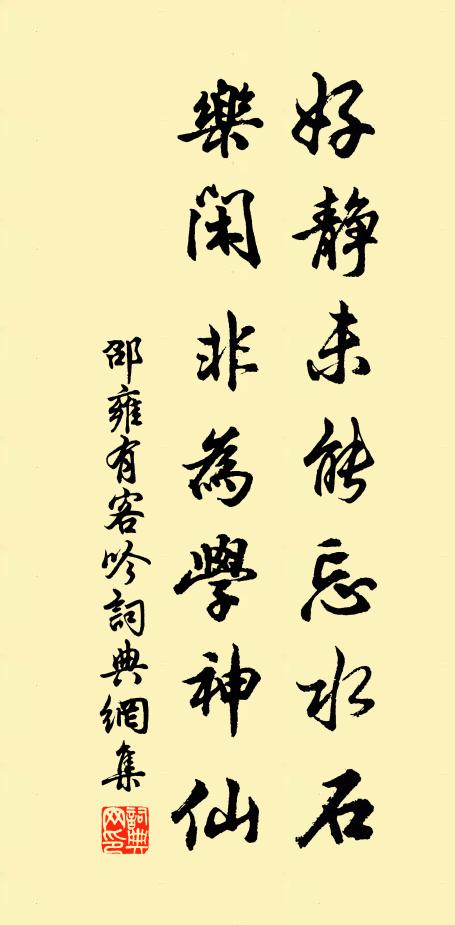 好静未能忘水石
樂閑非為學神仙
邵雍有客吟詞典網集
詞典網印